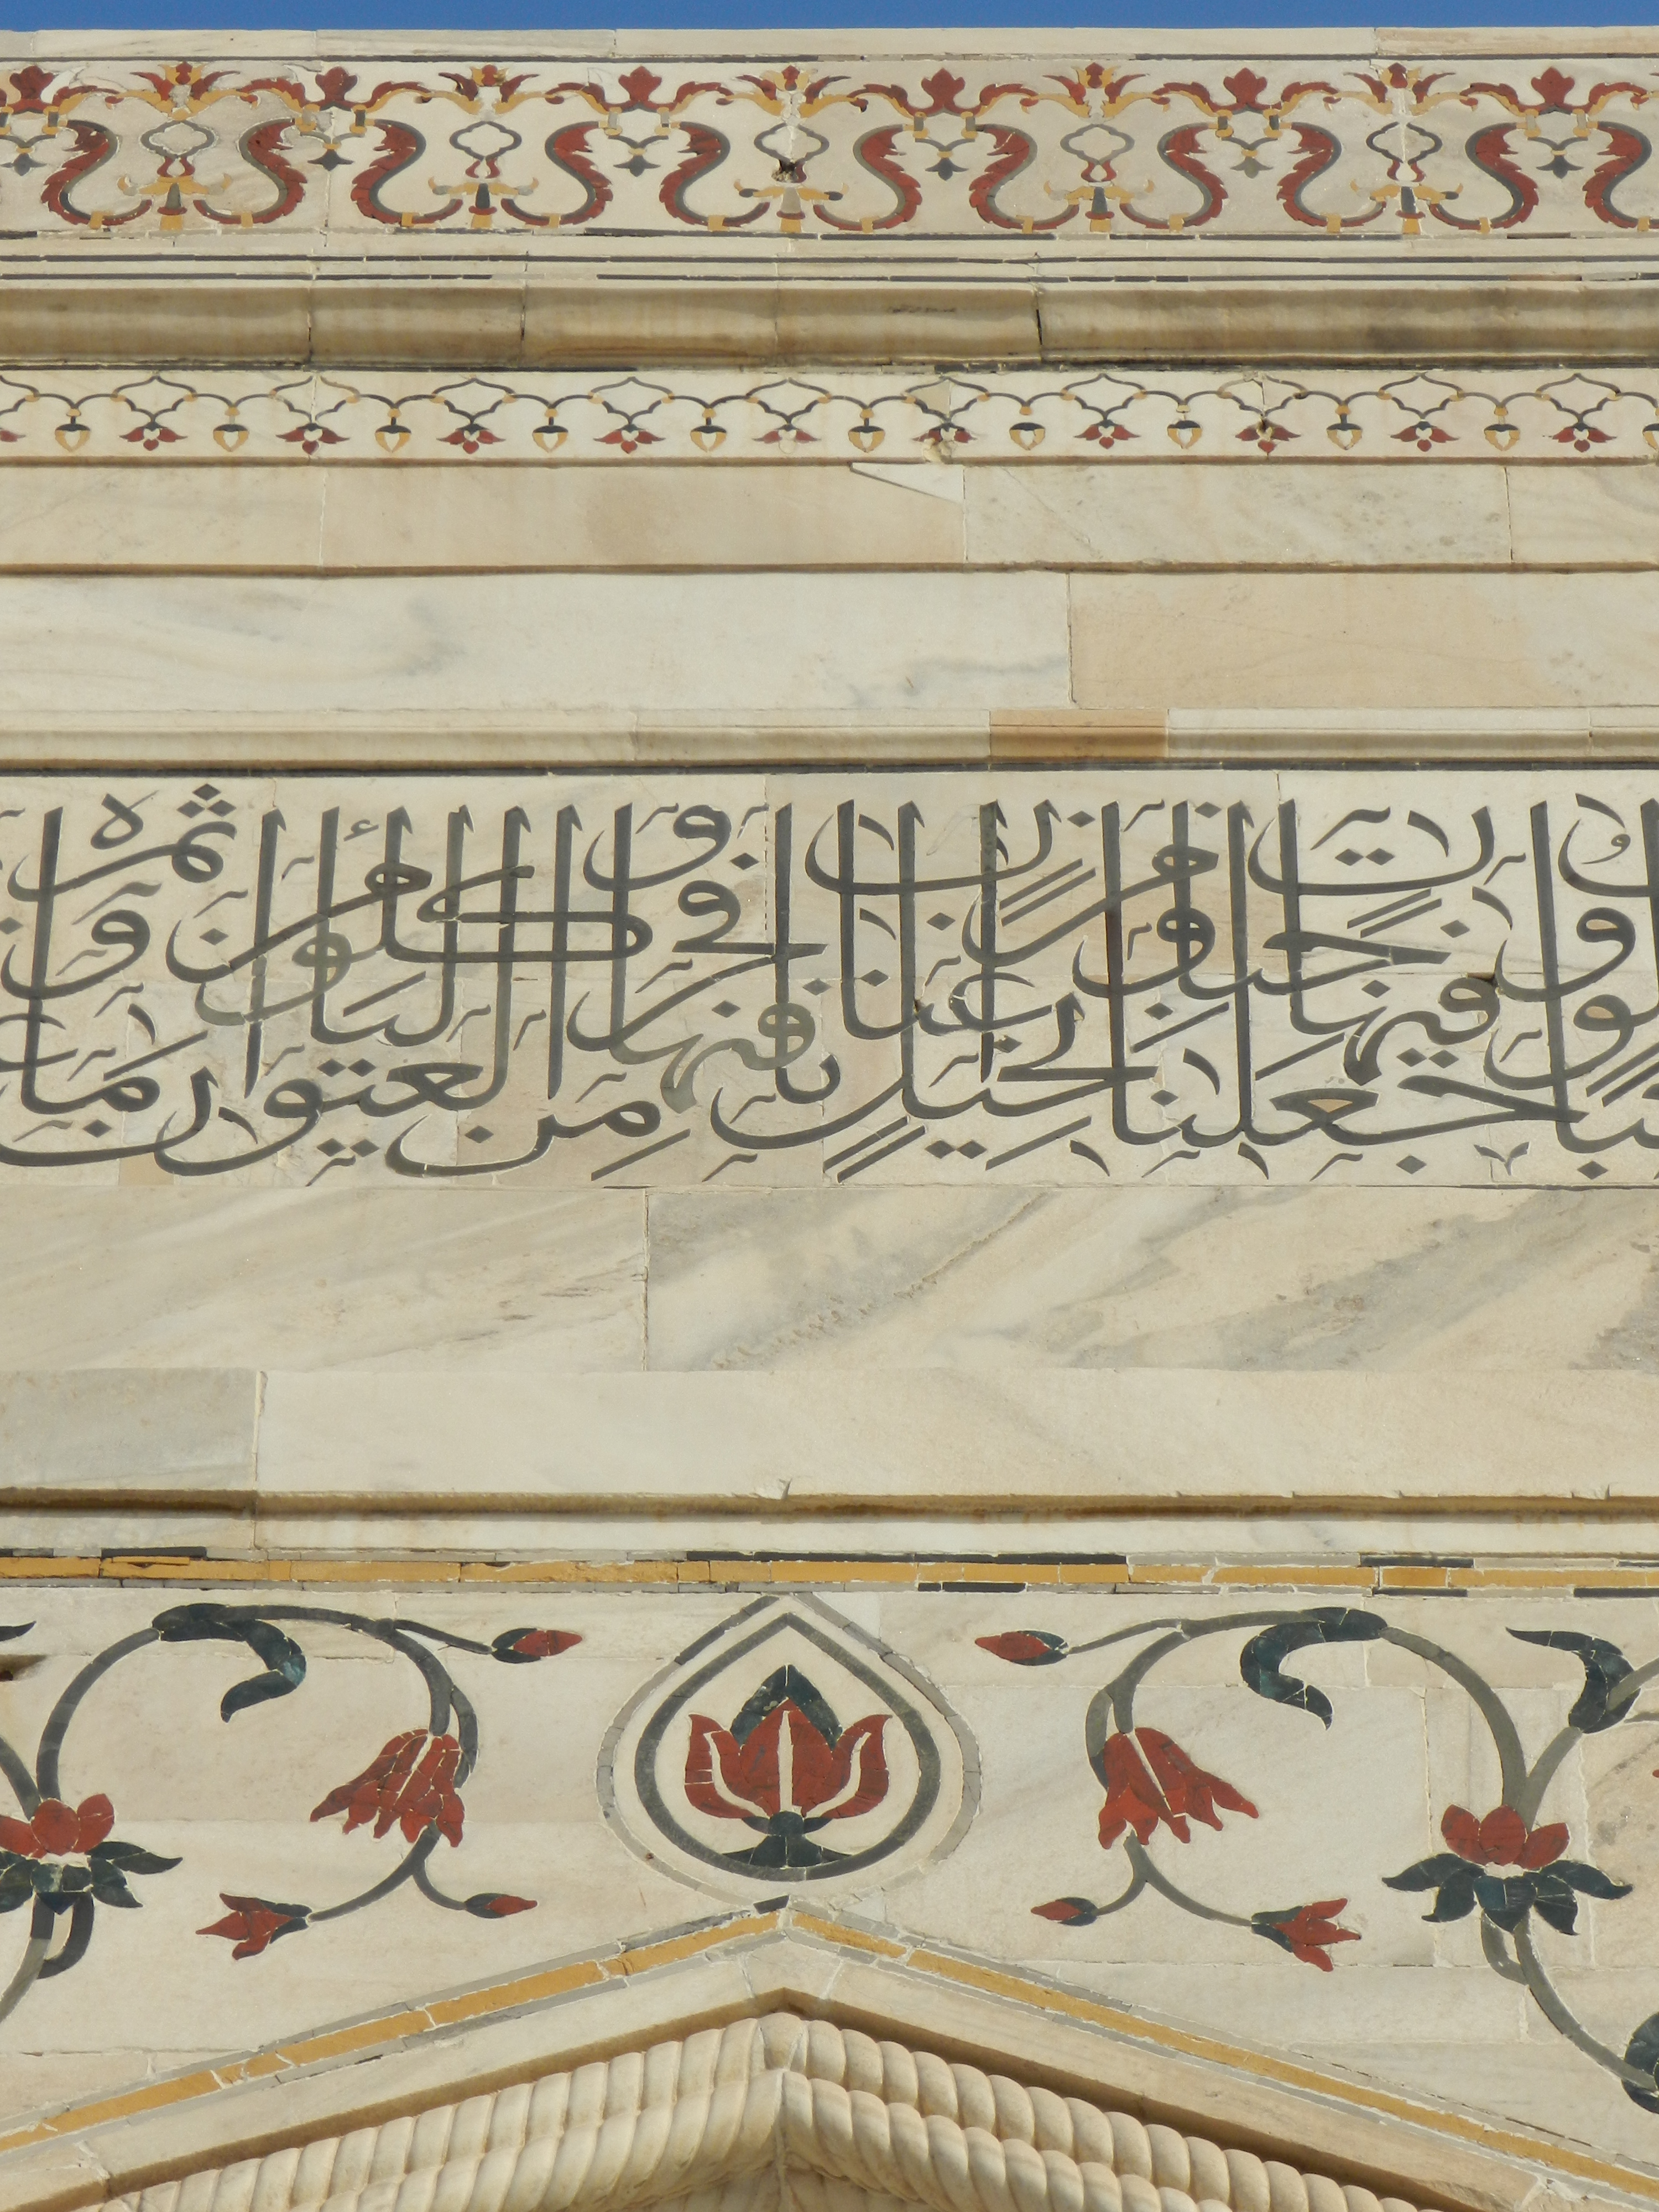 وَجَعَلْنَا فِيهَا جَنَّاتٍ مِنْ نَخِيلٍ وَأَعْنَابٍ وَفَجَّرْنَا فِيهَا مِنَ الْعُيُونِ لِيَأْكُلُوا مِنْ ثَمَرِهِ وَمَا